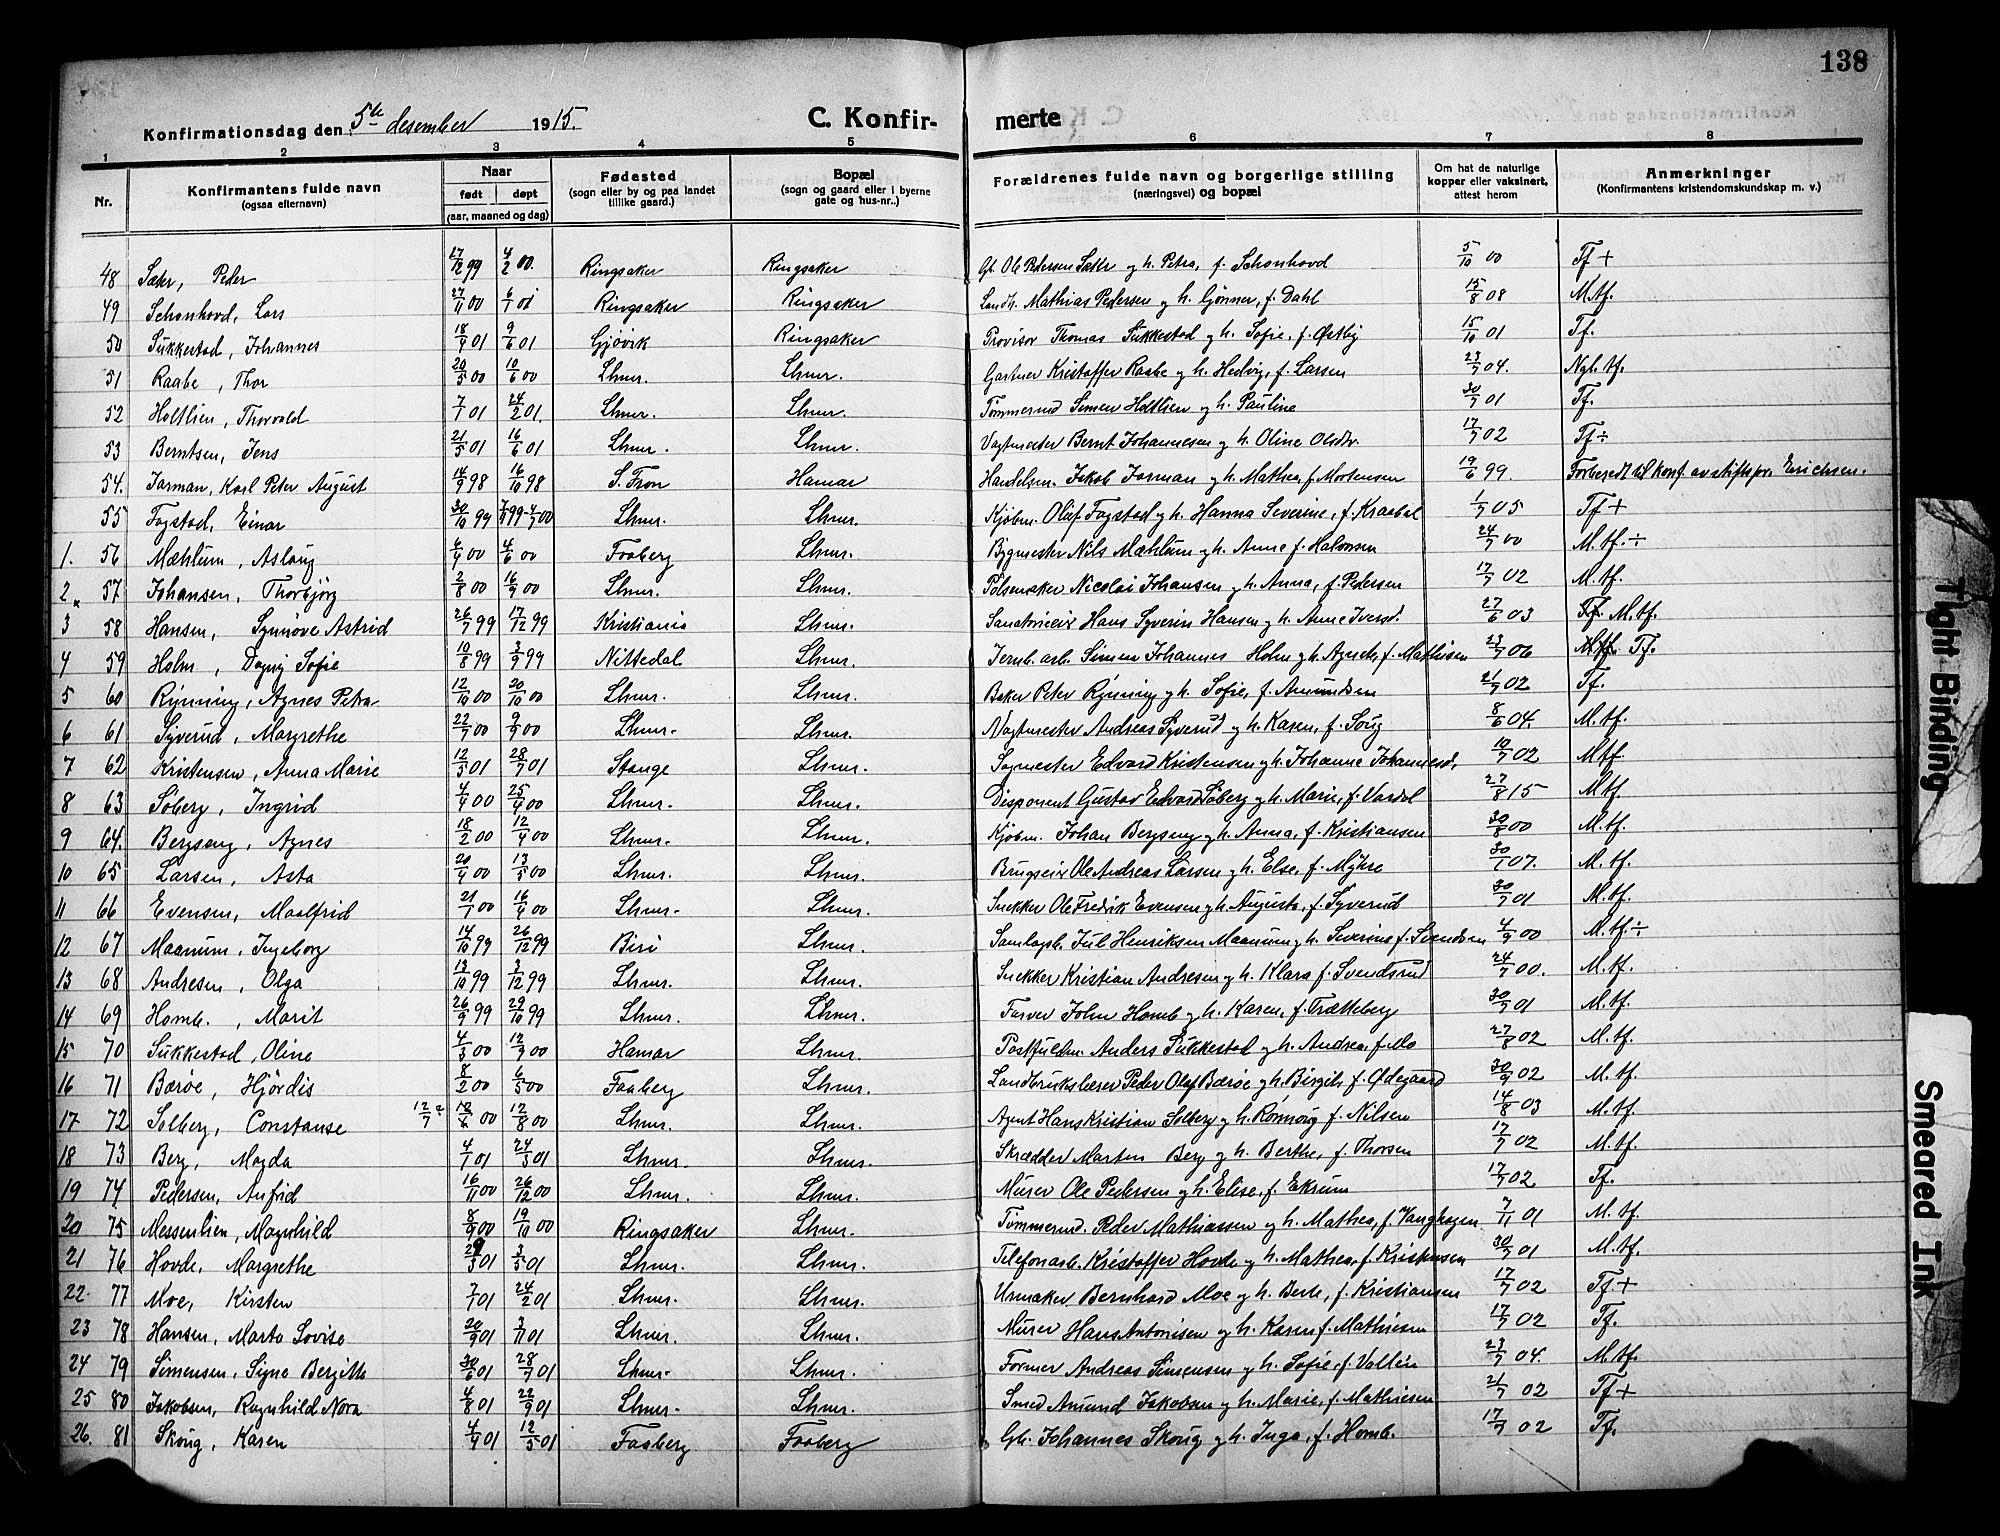 138
Konfirmationsdag den 5te desember 1915. C. Konfir- merte
1 2 3 4 5 6 7 8
Nr. Konfirmantens fulde navn (ogsaa efternavn) Naar født døpt (aar, maaned og dag) Fødested (sogn eller by og paa landet tillike gaard.) Bopæl (sogn og gaard eller i byerne gate og hus-nr..) Forældrenes fulde navn og borgerlige stilling (næringsvei) og bopæl Om hat de naturlige kopper eller vaksinert, attest herom Anmerkninger (Konfirmantens kristendomskundskap m. v.)
48 Sæter, Peder 27/12 99 4/2 00. Ringsaker Ringsaker Gb. Ole Pedersen Sæter og h. Petra, f. Schonhovd 5/10 00 Tf +
49 Schonhovd, Lars 27/11 00 6/1 01 Ringsaker Ringsaker Landh. Mathias Pedersen og h. Gønner, f. Dahl 15/8 08 M.tf.
50 Sukkestad, Johannes 18/4 01 9/6 01 Gjøvik Ringsaker Provisor Thomas Sukkestad og h. Sofie, f. Østby 15/10 01 Tf.
51 Raabe, Thor 20/5 00 10/6 00 Lhmr. Lhmr. Gartner Kristoffer Raabe og h. Hedvig, f. Larsen 23/7 04. Ngl. tf.
52 Holtlien, Thorvald 7/1 01 24/2 01. Lhmr. Lhmr. Tømmermd Simen Holtlien og h. Pauline 30/7 01 Tf.
53 Berntsen, Jens 21/5 01 16/6 01 Lhmr. Lhmr. Vagtmester Bernt Johannesen og h. Oline Olsdtr. 17/7 02 Tf ÷
54. Jarman, Karl Peter August 14/9 98 16/10 98 S. Fron Hamar Handelsm. Jakob Jarman og h. Mathea, f. Mortensen 19/6 99. Forberedt til konf. av stiftspr. Erichsen.
55 Fagstad, Einar 30/10 99 99 - 4/7 00 Lhmr. Lhmr. Kjøbm. Olaf Fagstad og h. Hanna Severine, f. Kraabøl 1/7 05 Tf +
1. 56 Mæhlum, Aslaug 6/4 00 4/6 00 Faaberg Lhmr. Bygmester Nils Mæhlum og h. Anne f. Halvorsen 24/7 00 M. tf. ÷
2 57 Johansen, Thorbjørg 2/8 00 16/9 00 Lhmr. Lhmr. Pølsemaker Nicolai Johansen og h. Anna, f. Pedersen 17/7 02 M. tf.
3 58 Hansen, Synnøve Astrid 26/7 99 17/12 99 Kristiania Lhmr. Sanatorieeier Hans Syverin Hansen og h. Anne Iversd. 27/6 03 Tf. M. tf.
4 59 Holm, Dagny Sofie 10/8 99 3/9 99 Nittedal Lhmr. Jernb. arb. Simen Johannes Holm og h. Agneth, f. Mathisen 23/7 06 M.tf. Tf.
5 60 Rynning, Agnes Petra 12/10 00 20/10 00 Lhmr. Lhmr. Baker Peter Rynning og h. Sofie, f. Amundsen 21/7 02 Tf.
6 61 Syverud, Margrethe 22/7 00 9/9 00 Lhmr. Lhmr. Vagtmester Andreas Syverud og h. Karen, f. Soug 8/6 04. M. tf.
7 62 Kristensen, Anna Marie 12/5 01 28/7 01 Stange Lhmr. Sagmester Edvard Kristensen og h. Johanne Johannesd. 10/7 02 M tf.
8 63 Søberg, Ingrid 4/4 00 25/4 00 Lhmr. Lhmr. Disponent Gustav Edvard Søberg og h. Marie, f. Vardal 27/8 15 M tf.
9 64. Bergseng, Agnes 18/2 00 12/4 00 Lhmr. Lhmr. Kjøbm. Johan Bergseng og h. Anna, f. Kristiansen 30/8 00 M. tf.
10 65 Larsen, Asta 20/4 00 13/5 00 Lhmr. Lhmr. Brugseier Ole Andreas Larsen og h. Else, f. Myhre 30/1 07. M. tf.
11 66 Evensen, Maalfrid 21/1 00 16/4 00 Lhmr. Lhmr. Snekker Ole Fredrik Evensen og h. Augusta, f. Syverud 30/7 01 M. tf.
12 67 Maanum, Ingeborg 14/10 99 26/12 99 Biri Lhmr. Samlagsb. Jul Henriksen Maanum og h. Severine f. Svendsen 4/9 00 M. tf. ÷
13 68 Andresen, Olga 13/10 99 3/12 99 Lhmr. Lhmr. Snekker Kristian Andresen og h. Klara f. Svendsrud 24/7 00. M. tf.
14 69 Homb., Marit 26/9 99 29/10 99 Lhmr. Lhmr. Farver John Homb og h. Karen, f. Trætteberg 30/7 01 M. tf.
15 70 Sukkestad, Oline 4/3 00 12/9 00 Hamar Lhmr. Postfuldm. Anders Sukkestad og h. Andrea, f. Mo 27/8 02 M. tf.
16 71 Bærøe, Hjørdis 8/2 00 6/5 00 Faaberg Lhmr. Landbrukslærer Peder Olaf Bærøe og h. Birgit, f. Ødegaard 30/9 02 M. tf.
17 72 Solberg, Constanse 12/7 ? 12/6 00 12/8 00 Lhmr. Lhmr. Agent Hans Kristian Solberg og h. Rønnoug f. Nilsen 14/8 03 M. tf.
18 73 Berg, Magda 4/1 01 24/3 01 Lhmr. Lhmr. Skrædder Marten Berg og h. Berthe, f. Thorsen 17/7 02 M. tf.
19 74. Pedersen, Anfrid 16/11 00 26/12 00 Lhmr. Lhmr. Murer Ole Pedersen og h. Elise, f. Ekrum 17/7 02 Tf.
20 75 Messenlien, Magnhild 8/9 00 19/10 00 Ringsaker Lhmr. Tømmermd. Peder Mathiassen og h. Mathea, f. Vanghagen 7/11 01 M. tf.
21 76 Hovde, Margrethe 29/3 01 3/5 01 Lhmr. Lhmr. Telefonarb. Kristoffer Hovde og h. Mathea, f. Kristensen 30/7 01 M. tf.
22. 77 Moe, Kirsten 7/1 01 24/2 01 Lhmr. Lhmr. Urmaker Bernhard Moe og h. Berte, f. Kristiansen 17/7 02 Tf +
23 78 Hansen, Marta Lovise 20/9 01 3/11 01 Lhmr. Lhmr. Murer Hans Antonisen og h. Karen f. Mathiesen 17/7 02 Tf.
24 79 Simensen, Signe Bergitte 30/6 01 28/7 01 Lhmr. Lhmr. Former Andreas Simensen og h. Sofie, f. Vallein 23/7 04. M. tf.
25 80 Jakobsen, Ragnhild Nora 4/8 01 22/9 01 Lhmr. Lhmr. Smed Amund Jakobsen og h. Marie, f. Mathiesen 21/7 02 Tf +
26. 81 Skoug, Karen 4/4 01 12/5 01 Faaberg Faaberg Gb. Johannes Skoug og h. Inga, f. Homb. 17/7 02 Tf.
Tight Binding
Smeared Ink